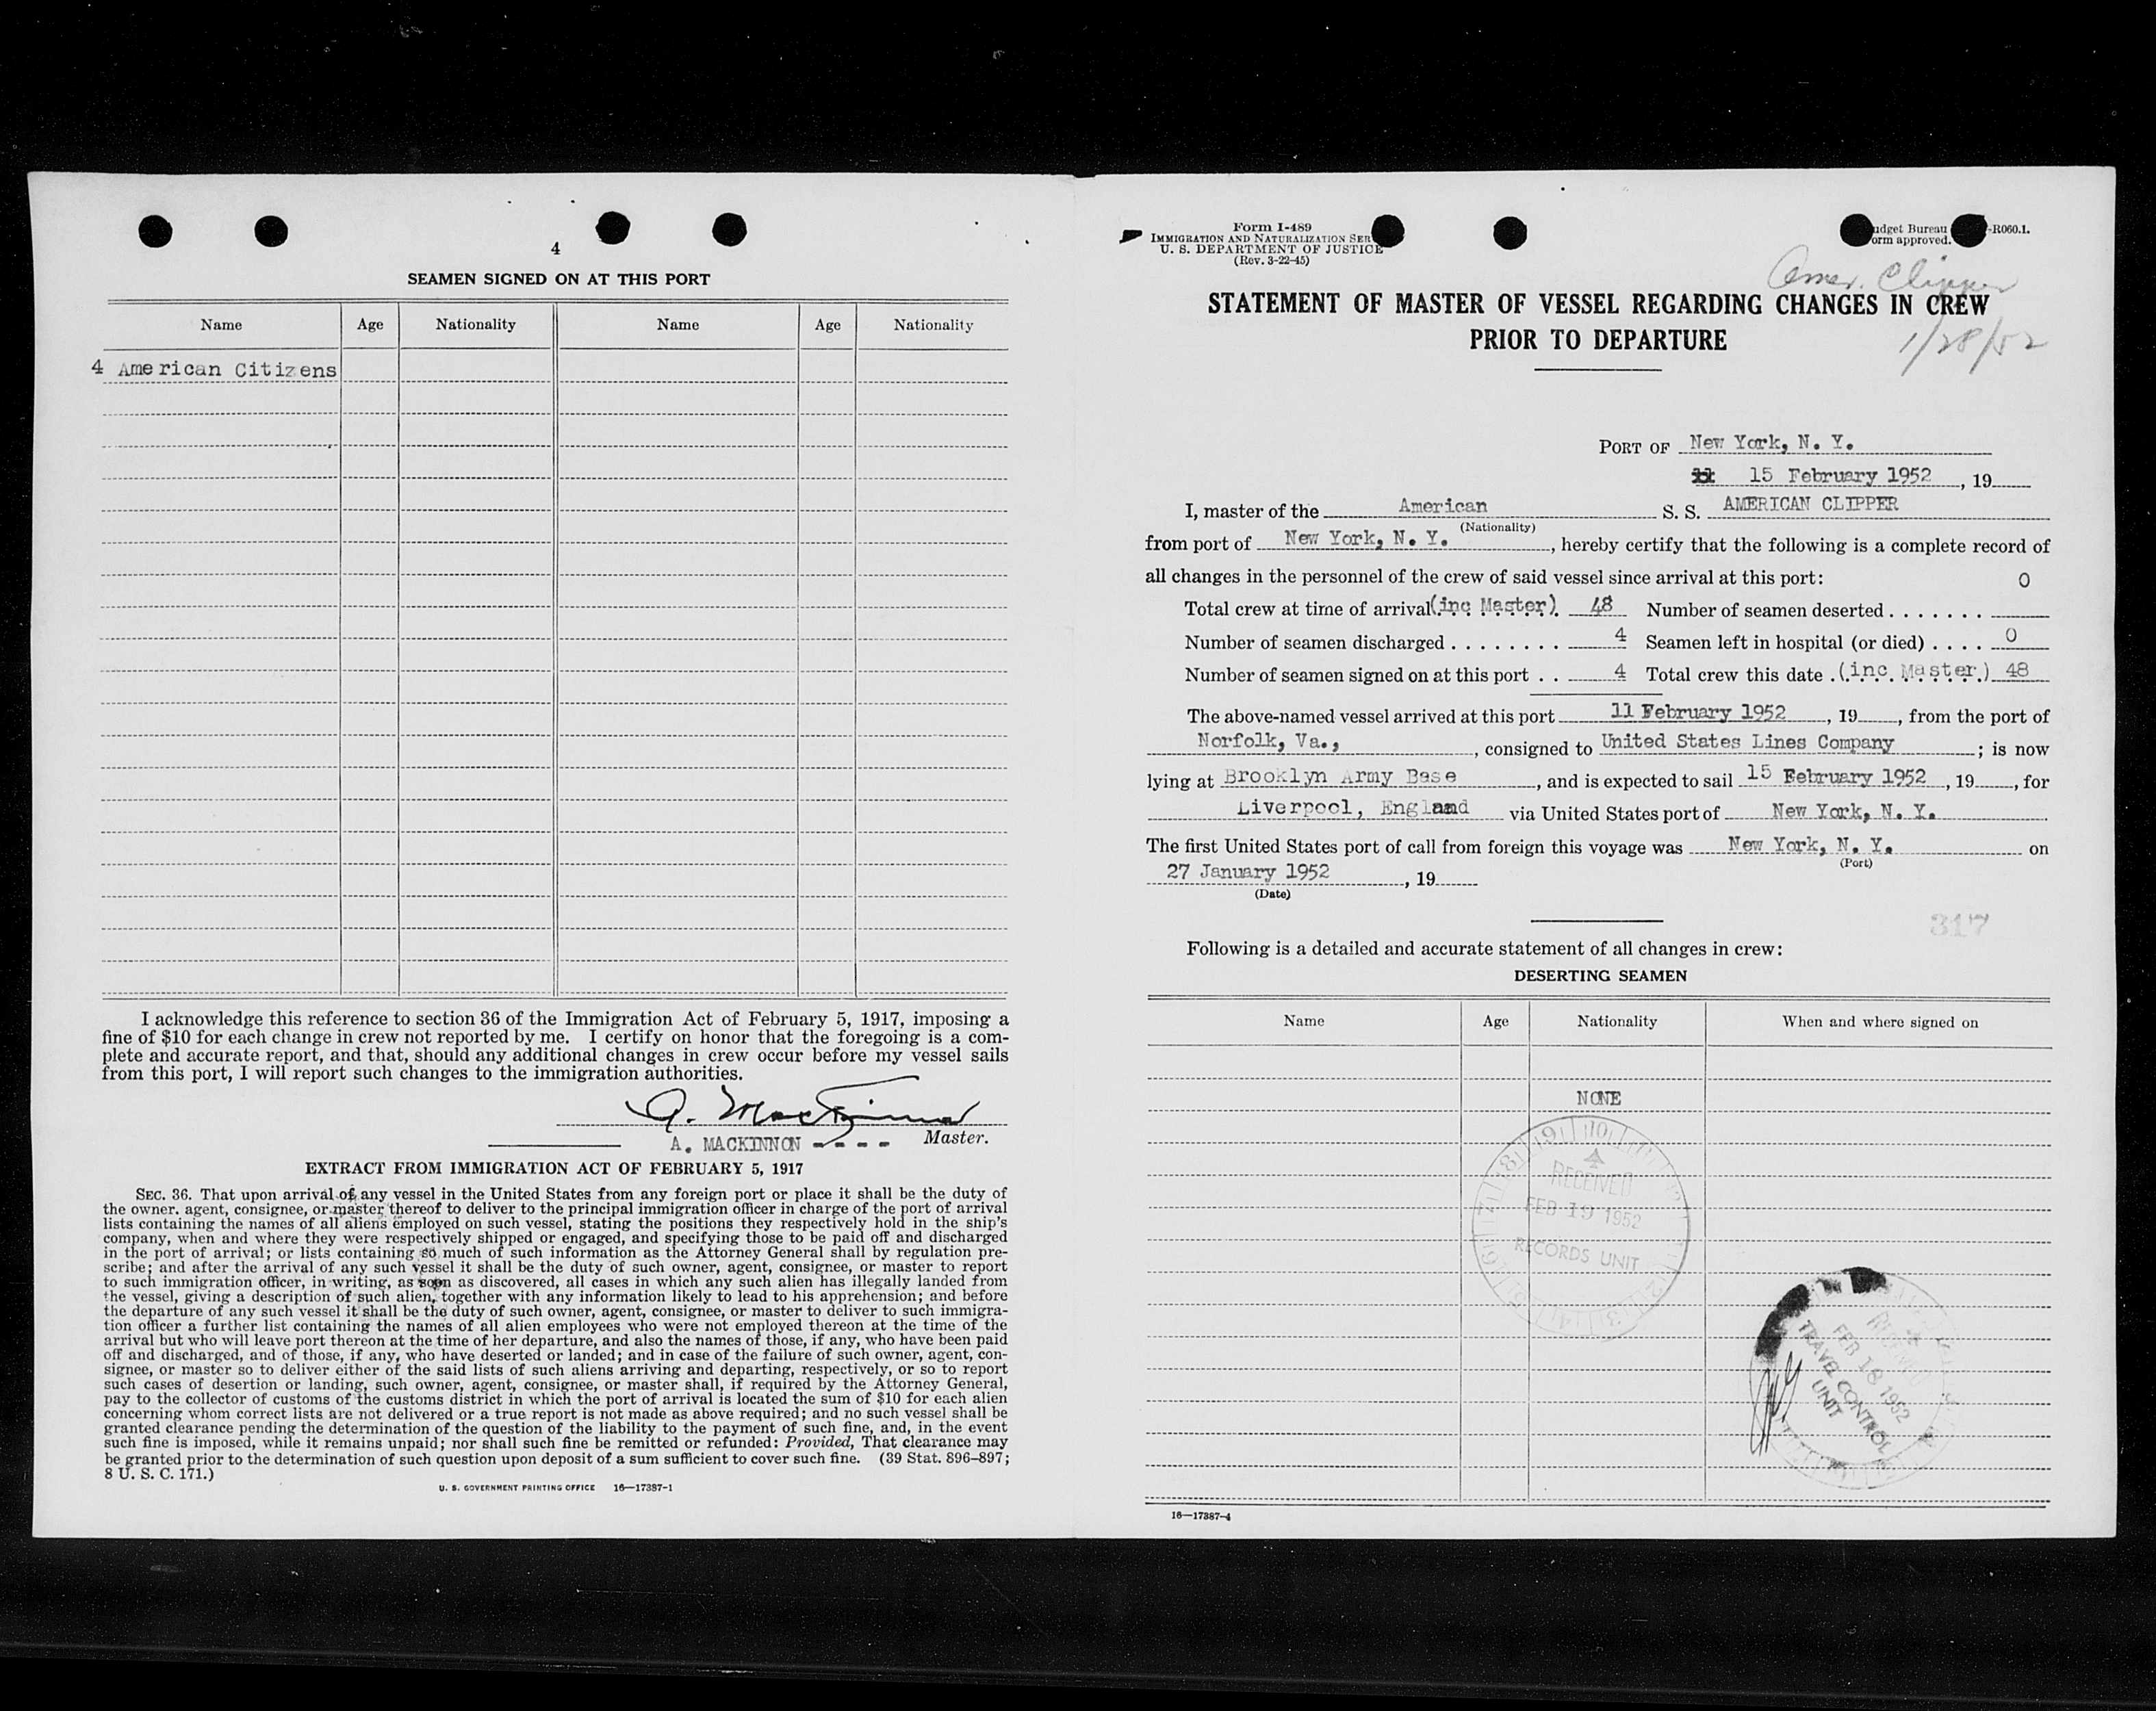 4
SEAMEN SIGNED ON AT THIS PORT
Name Age Nationality Name Age Nationality
4 American Citizens
I acknowledge this reference to section 36 of the Immigration Act of February 5, 1917, imposing a
fine of $10 for each change in crew not reported by me. I certify on honor that the foregoing is a com-
plete and accurate report, and that, should any additional changes in crew occur before my vessel sails
from this port, I will report such changes to the immigration authorities.
A. MacKinnon
A. MACKINNON - - - - Master.
EXTRACT FROM IMMIGRATION ACT OF FEBRUARY 5, 1917
SEC. 36. That upon arrival of any vessel in the United States from any foreign port or place it shall be the duty of
the owner. agent, consignee, or master thereof to deliver to the principal immigration officer in charge of the port of arrival
lists containing the names of all aliens employed on such vessel, stating the positions they respectively hold in the ship's
company, when and where they were respectively shipped or engaged, and specifying those to be paid off and discharged
in the port of arrival; or lists containing so much of such information as the Attorney General shall by regulation pre-
scribe; and after the arrival of any such vessel it shall be the duty of such owner, agent, consignee, or master to report
to such immigration officer, in writing, as soon as discovered, all cases in which any such alien has illegally landed from
the vessel, giving a description of such alien, together with any information likely to lead to his apprehension; and before
the departure of any such vessel it shall be the duty of such owner, agent, consignee, or master to deliver to such immigra-
tion officer a further list containing the names of all alien employees who were not employed thereon at the time of the
arrival but who will leave port thereon at the time of her departure, and also the names of those, if any, who have been paid
off and discharged, and of those, if any, who have deserted or landed; and in case of the failure of such owner, agent, con-
signee, or master so to deliver either of the said lists of such aliens arriving and departing, respectively, or so to report
such cases of desertion or landing, such owner, agent, consignee, or master shall, if required by the Attorney General,
pay to the collector of customs of the customs district in which the port of arrival is located the sum of $10 for each alien
concerning whom correct lists are not delivered or a true report is not made as above required; and no such vessel shall be
granted clearance pending the determination of the question of the liability to the payment of such fine, and, in the event
such fine is imposed, while it remains unpaid; nor shall such fine be remitted or refunded: Provided, That clearance may
be granted prior to the determination of such question upon deposit of a sum sufficient to cover such fine. (39 Stat. 896–897;
8 U. S. C. 171.)
U. S. GOVERNMENT PRINTING OFFICE 16—17387-1
Form I-489
IMMIGRATION AND NATURALIZATION SER
U. S. DEPARTMENT OF JUSTICE
(Rev. 3-22-45)
udget Bureau -R060.1.
orm approved.
Amer. Clipper
STATEMENT OF MASTER OF VESSEL REGARDING CHANGES IN CREW
PRIOR TO DEPARTURE
1/28/52
PORT OF New York, N. Y.
15 February 1952, 19
I, master of the American S. S. AMERICAN CLIPPER
(Nationality)
from port of New York, N. Y., hereby certify that the following is a complete record of
all changes in the personnel of the crew of said vessel since arrival at this port: 0
Total crew at time of arrival(inc Master). 48 Number of seamen deserted . . . . . . .
Number of seamen discharged . . . . . . . . 4 Seamen left in hospital (or died) . . . . 0
Number of seamen signed on at this port . . 4 Total crew this date .(inc. Master.) 48
The above-named vessel arrived at this port 11 February 1952, 19, from the port of
Norfolk, Va.,, consigned to United States Lines Company; is now
lying at Brooklyn Army Base, and is expected to sail 15 February 1952, 19, for
Liverpool, England via United States port of New York, N. Y.
The first United States port of call from foreign this voyage was New York, N. Y. on
(Port)
27 January 1952, 19
(Date)
317
Following is a detailed and accurate statement of all changes in crew:
DESERTING SEAMEN
Name Age Nationality When and where signed on
NONE
RECEIVED
FEB 19 1952
RECORDS UNIT
RECEIVED
FEB 18 1952
TRAVEL CONTROL
UNIT
16—17387-4